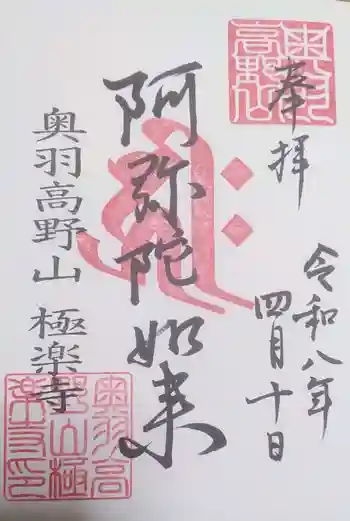 奉拝
令和八年
四月十日
阿弥陀如来
奥羽高野山 極楽寺
奥羽高野山
奥羽高野山極楽寺印